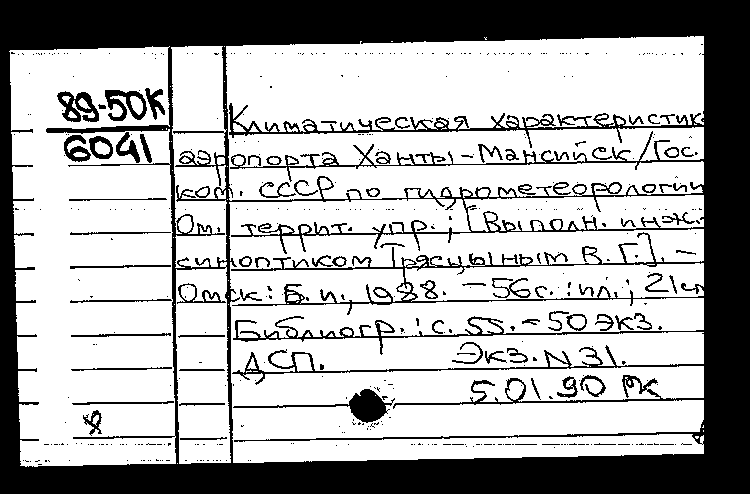 89-50К
6041
Климатическая характеристик
аэропорта Ханты-Мансийск/Гос.
ком. СССР по гидрометеорологии
Ом. террит. упр.; [Выполн. инж.-
синоптиком Трясцыным В. Г.]. –
Омск: Б. и., 1988. – 56 с.: ил.; 21 см
Библиогр.: с. 55. – 50 экз.
ДСП. Экз. N 31.
5.01.90 РК